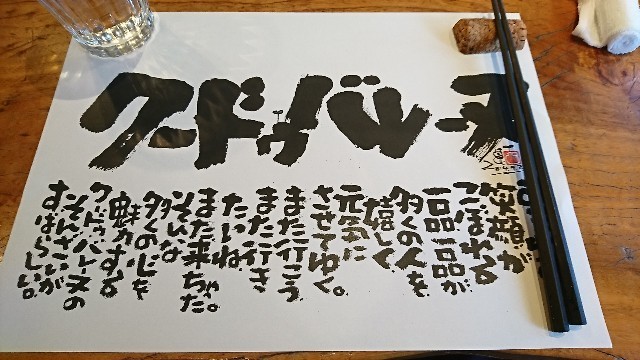 クードゥバレーヌ
笑顔が
こぼれる
一品一品が
多くの人を
嬉しく
元気に
させてゆく。
また行こう
また行き
たいね
また来ちゃた。
そんな
多くの心を
魅かする
クードゥバレーヌの
そんざいが
すばらしい。